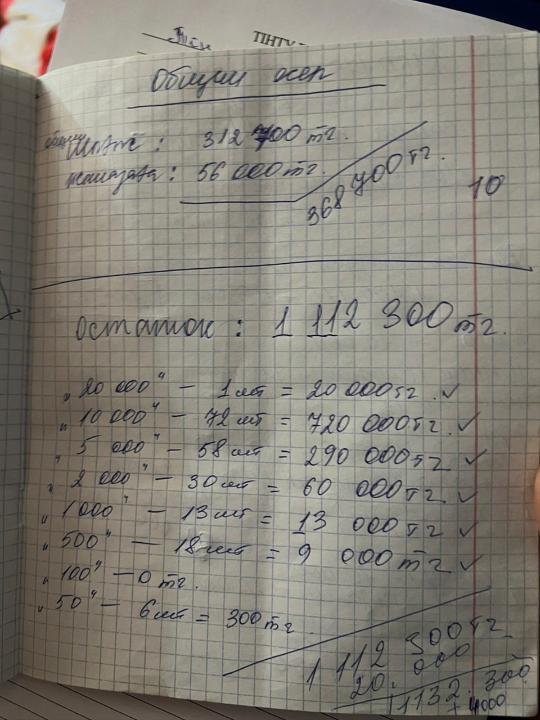 ТІНТУ
Общий осер
312 700 тг.
56 000 тг.
368 700 тг.
10
Остаток : 1 112 300 тг.
„20 000" — 1 шт = 20 000 тг. ✓
„10 000" — 72 шт = 720 000 тг. ✓
„5 000" — 58 шт = 290 000 тг ✓
„2 000" — 30 шт = 60 000 тг ✓
„1000" — 13 шт = 13 000 тг ✓
„500" — 18 шт = 9 000 тг ✓
„100" — 0 тг.
„50" — 6 шт = 300 тг
1 112 300 тг
20. 000
1132. 300